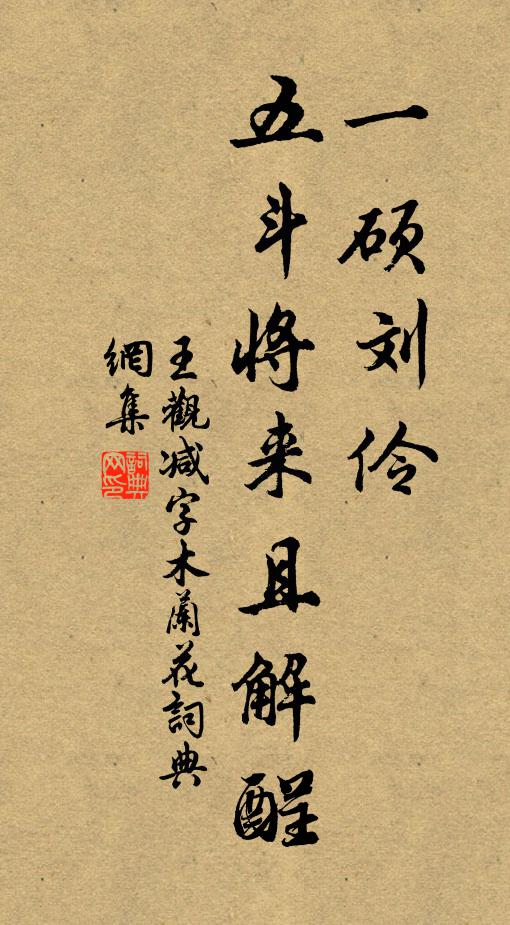 一硕刘伶
五斗将来且解酲
王觀减字木蘭花詞典
網集
詞典
网印